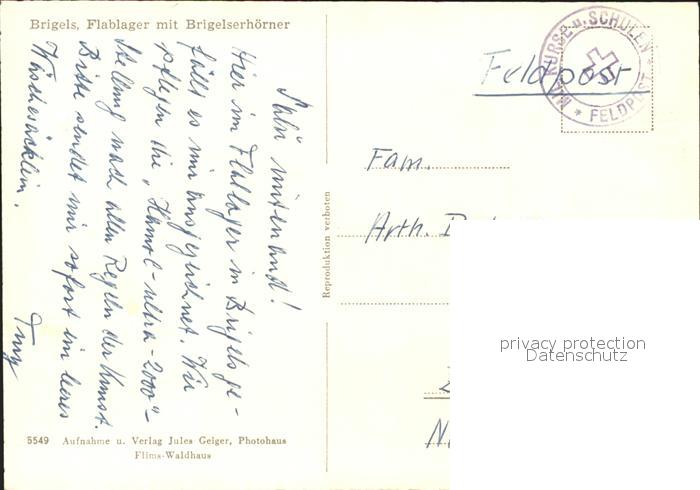 Brigels, Flablager mit Brigelserhörner
Salü mitenand!
Hier im Flablager in Brigels ge-
fällt es mir ausgezeichnet. Wir
pflegen die
Stellung nach allen Regeln der Kunst.
Bitte sendet mir sofort ein leeres
Wäschesäcklein.
5549 Aufnahme u. Verlag Jules Geiger, Photohaus
Flims-Waldhaus
Reproduktion verboten
MIL. KURSE u. SCHULEN
* FELDPOST *
Feldpost
Fam.
Arth.
privacy protection
Datenschutz